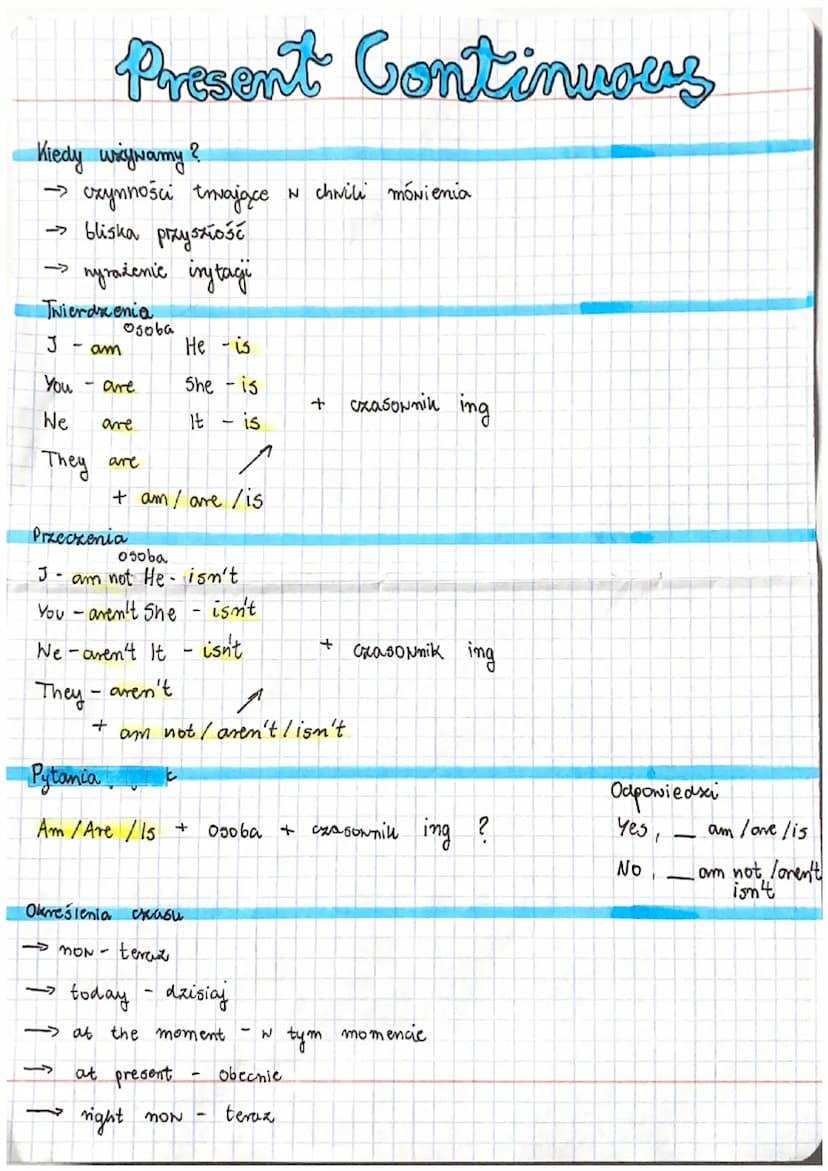 Present Continuous
Kiedy używamy?
→ czynności trwające w chwili mówienia
→ bliska przyszłość
→ wyrażenie irytacji
Twierdzenia
osoba
I - am He - is
You - are She - is
We are It - is
+ czasownik ing
They are
+ am / are / is
Przeczenia
osoba
I - am not He - isn't
You - aren't She - isn't
We - aren't It - isn't
+ czasownik ing
They - aren't
+ am not / aren't / isn't
Pytania
Am / Are / Is + osoba + czasownik ing ?
Odpowiedzi
Yes, _ am / are / is
No, _ am not / aren't
isn't
Określenia czasu
→ now - teraz
→ today - dzisiaj
→ at the moment - w tym momencie
→ at present - obecnie
→ right now - teraz